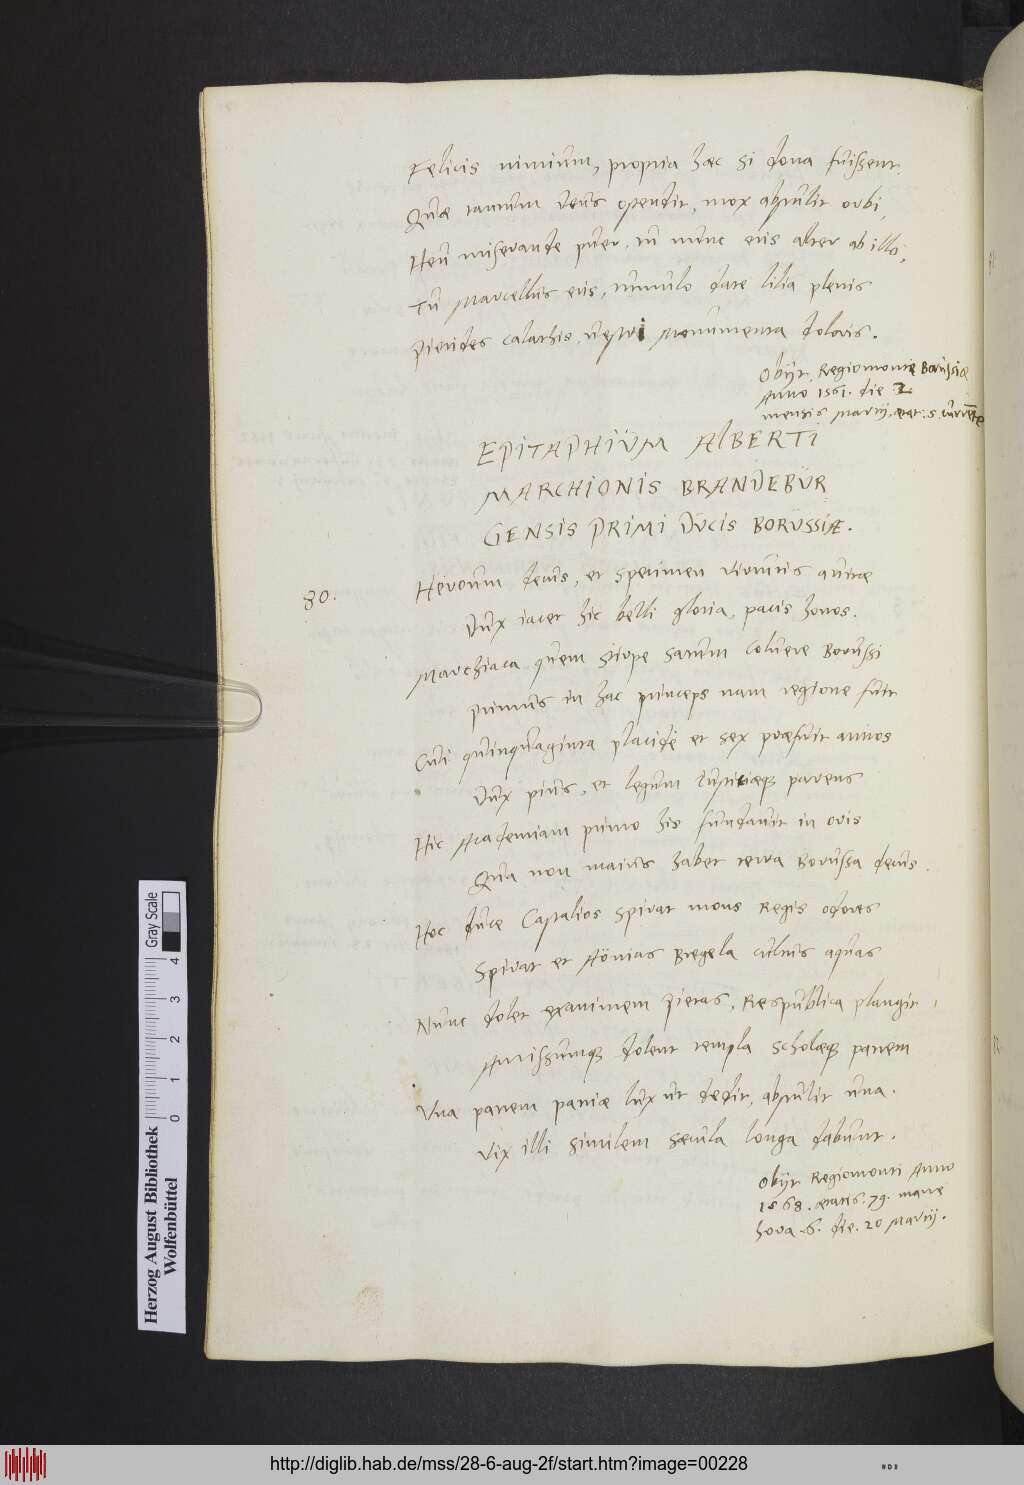 Felicis nimium, propria hæc si dona fuissent.
Quæ tantum deus ostendit, mox abstulit orbi,
Heu miserande puer, tu nunc eris alter ab illo,
Tu Marcellus eris, tumulo date lilia plenis
Pierides calathis, vestri monumenta doloris.
Obijt Regiomonte Borussiæ
Anno 1561. die 2
mensis Martij, ætat: 5. currēte
EPITAPHIUM ALBERTI
MARCHIONIS BRANDEBUR
GENSIS PRIMI DUCIS BORUSSIÆ.
80.
Heroum decus, et specimen virtutis avitæ
Dux iacet hic belli gloria, pacis honos.
Marchiaca quem stirpe satum coluere Borussi
Primus in hac princeps nam regione fuit
Cui quinquaginta placidè et sex præfuit annos
Dux pius, et legum iustitiæq̄ parens
Hic Academiam primo his fundavit in oris
Qua non maius habet terra Borussa decus.
Hoc duce Castalios spirat mons Regis odores
Spirat et Aönias Bregela cultus aquas
Nunc dolet exanimem pietas, Respublica plangit,
Amissumq̄ dolent templa scholæq̄ patrem
Una patrem patriæ lux ut dedit, abstulit una.
Vix illi similem sæcula longa dabunt.
Obijt Regiomonti Anno
1568. ætatis. 79. mane
hora .6. die. 20 Martij.
Herzog August Bibliothek
Wolfenbüttel
0 1 2 3 4
Gray Scale
http://diglib.hab.de/mss/28-6-aug-2f/start.htm?image=00228